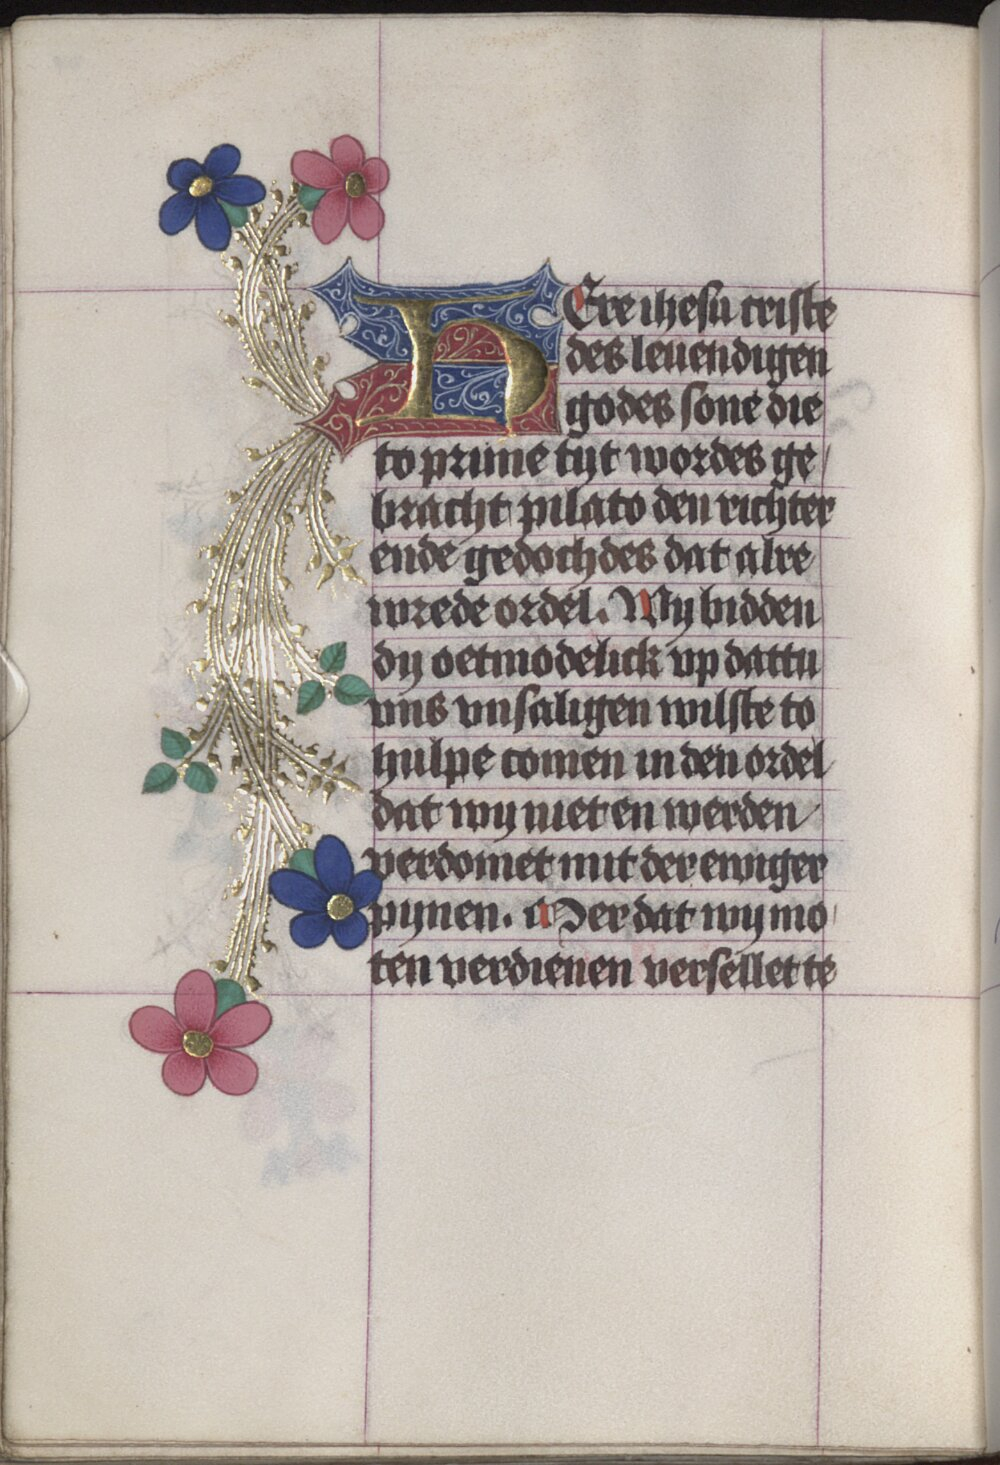 HEre ihesu criste
des leuendigen
godes sone die
to prime tijt wordes ge/
bracht pilato den richter
ende gedochdes dat alre
wrede ordel. Wy bidden
dy oetmodelick vp dattu
vns vnsaligen wilste to
hulpe comen in den ordel
dat wy niet en werden
verdomet mit der ewiger
pynen. Mer dat wy mo
ten verdienen versellet te